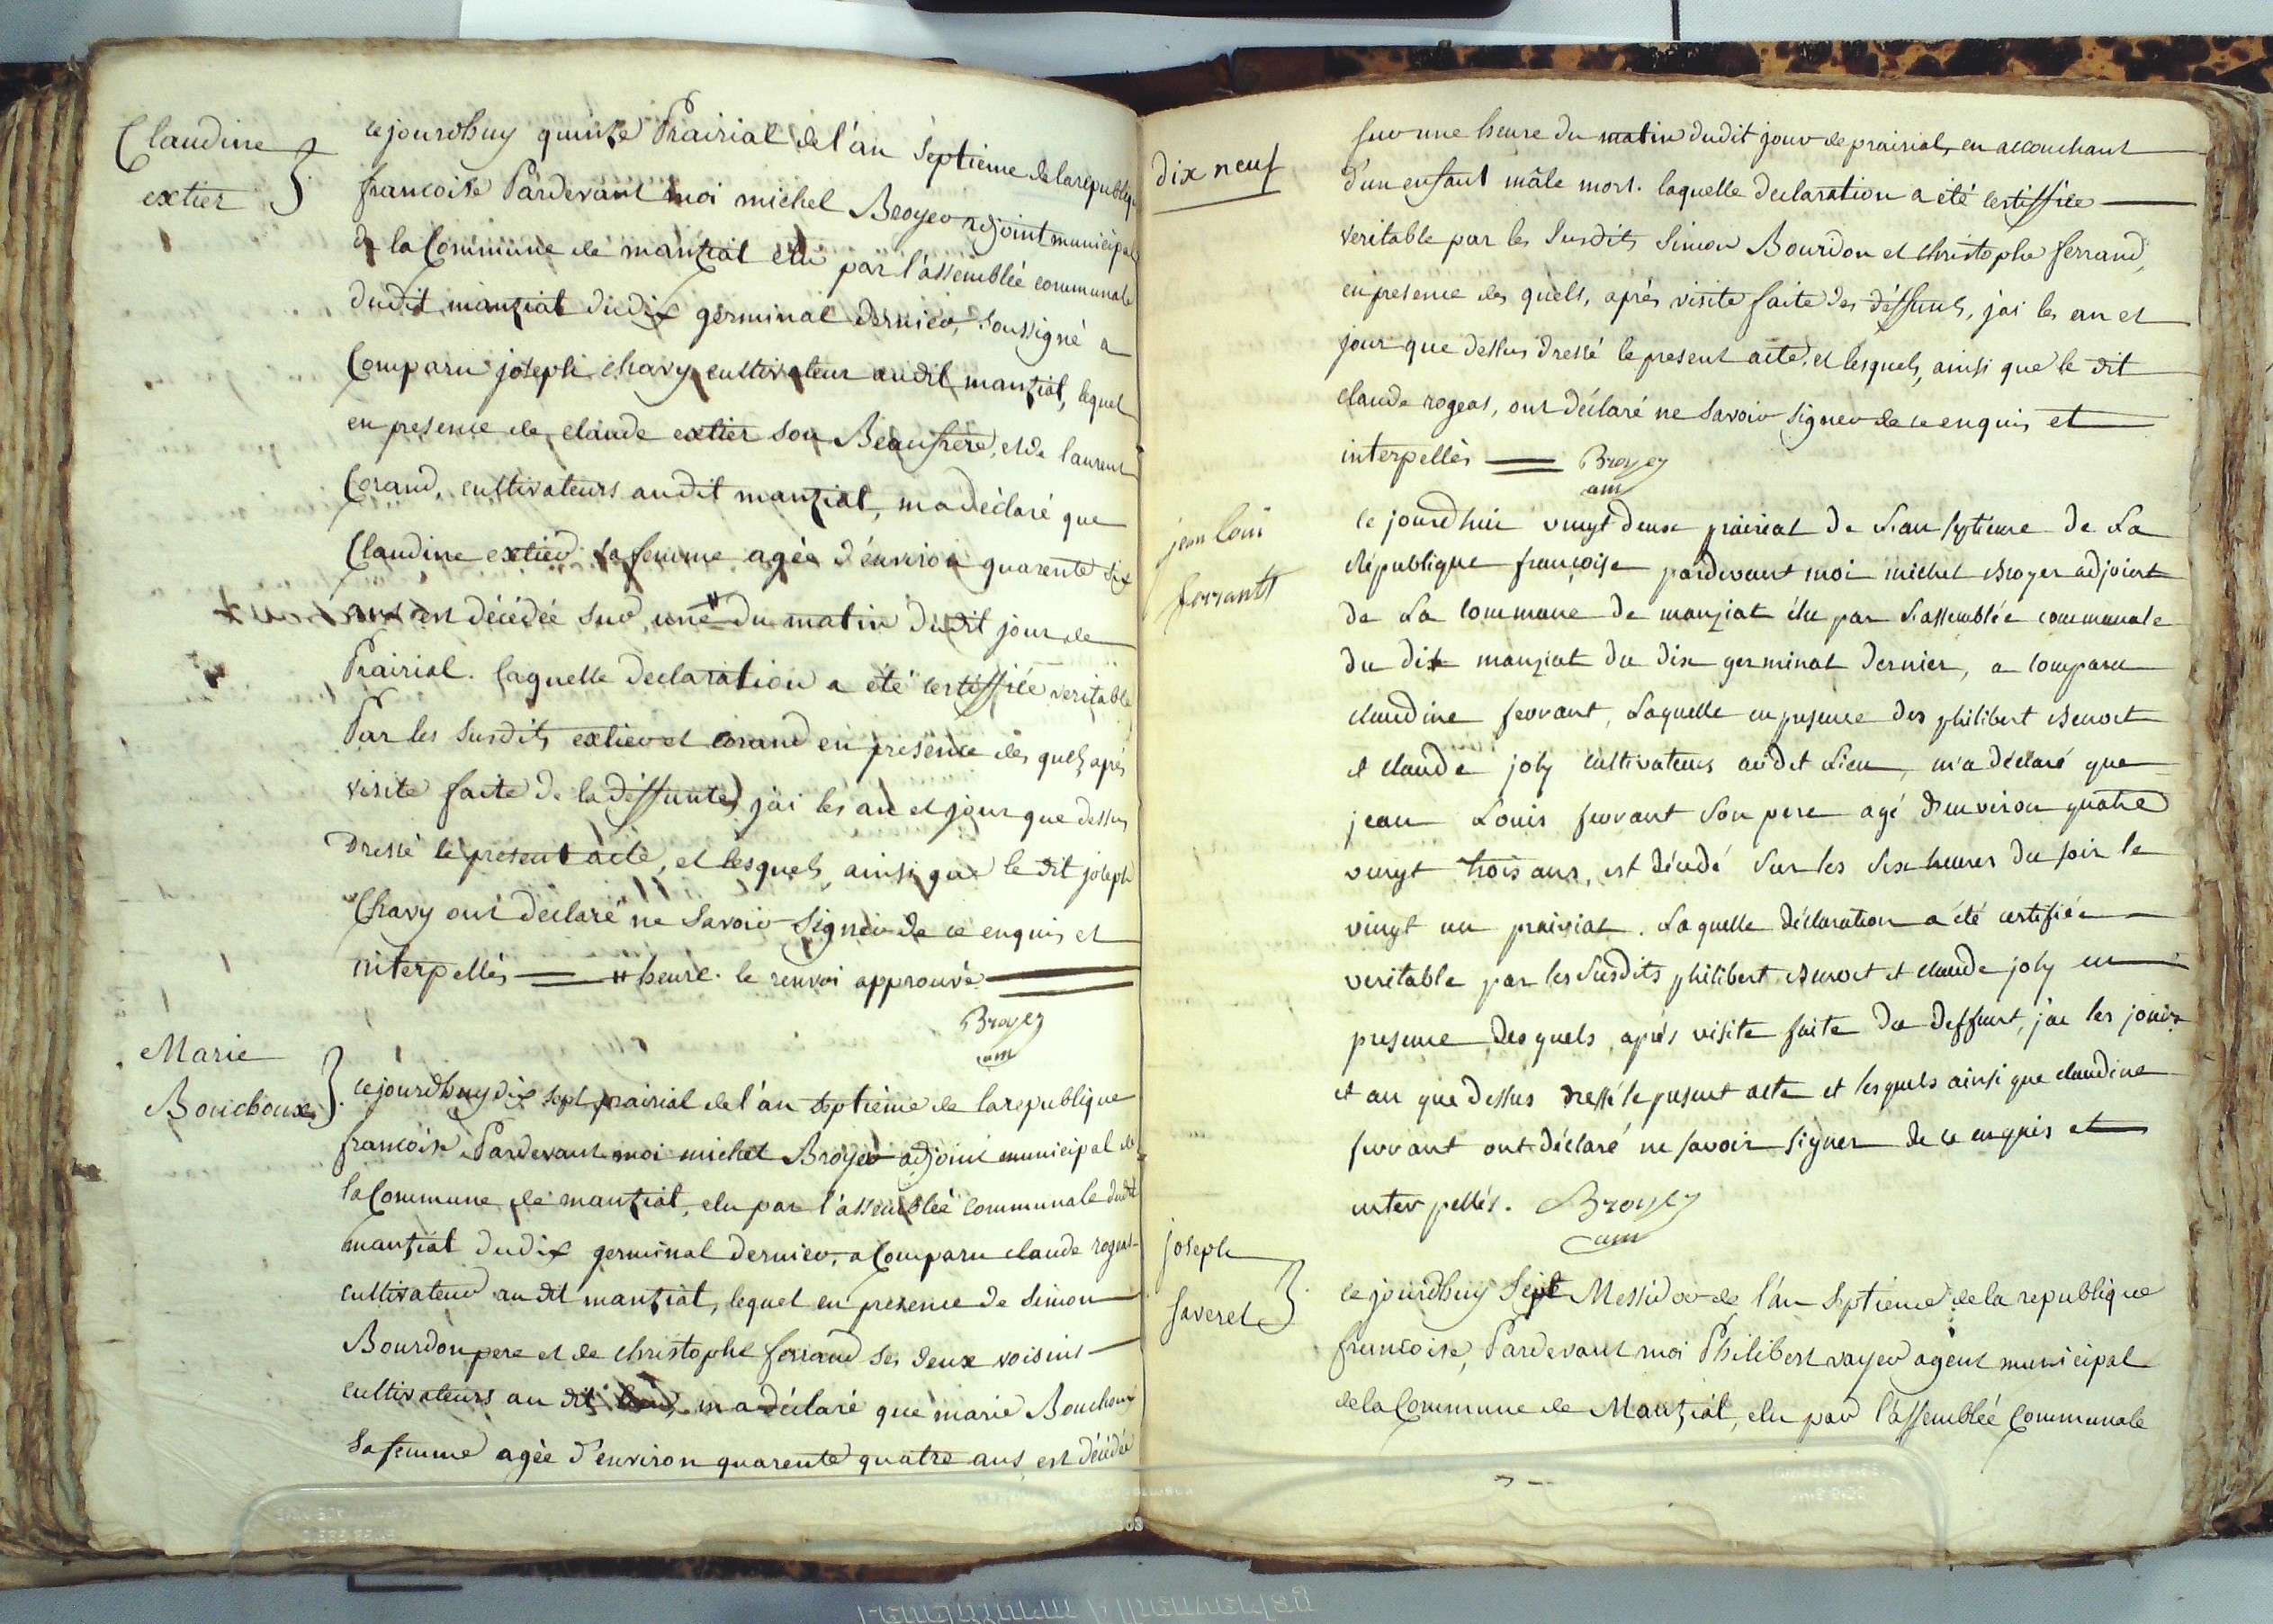 Claudine
extier
cejourdhuy quinze Prairial de l'an Septieme de la republiq
francoise Pardevant moi michel Broyer adjoint municipal
de la Commune de manziat elu par l'assemblée communale
dudit manziat du dix germinal dernier, soussigné a
Comparu joseph chavy cultivateur audit manziat, lequel
en presence de claude extier son Beaufrere, et de laurent
Corand, cultivateurs audit manziat, ma déclaré que
Claudine extier sa femme agée d'environ quarente six
ans est décédée sur une # du matin dudit jour de
Prairial. laquelle declaration a été certiffiée veritable
Par les susdits extier et Corand en presence des quels, après
visite faite de la deffunte, j'ai les an et jour que dessus
Dressé le present acte, et lesquels, ainsi que le dit joseph
Chavy ont déclaré ne savoir signer de ce enquis et
interpellés # heure. le renvoi approuvé
Broyer
am
Marie
Bouchoux
cejourdhuy dix sept prairial de l'an septieme de la republique
francoise Pardevant moi michel Broyer adjoint municipal de
la Commune de manziat, elu par l'assemblée communale dudit
manziat du dix germinal dernier, a Comparu claude rogeat
cultivateur audit manziat, lequel en presence de simon
Bourdon pere et de christophe ferrand ses deux voisins
cultivateurs au dit lieu, ma déclaré que marie Bouchoux
sa femme agée d'environ quarente quatre ans est décédée
dix neuf
sur une heure du matin dudit jour de prairial, en accouchant
d'un enfant mâle mort. laquelle declaration a été certiffiée
veritable par les susdits simon Bourdon et christophe ferrand,
en presence des quels, après visite faite des deffunts, j'ai les an et
jour que dessus dressé le present acte, et lesquels, ainsi que le dit
claude rogeat, ont déclaré ne savoir signer de ce enquis et
interpellés Broyer
am
jean loui
ferrant
ce jourd'hui vingt deux prairial de l'an septieme de La
République françoise pardevant moi michel Broyer adjoint
de La commune de manziat élu par L'assemblée communale
du dit manziat du dix germinal dernier, a comparu
claudine ferrant, Laquelle en presence des philibert Benoet
et claude joly cultivateurs audit Lieu, m'a déclaré que
jean Louis ferrant son pere agé d'environ quatre
vingt trois ans, est décédé sur les six heures du soir le
vingt un prairial. Laquelle déclaration a été certifiée
veritable par les susdits philibert Benoet et claude joly en
presence desquels, après visite faite du deffunt, j'ai les jours
et an que dessus dressé le present acte et lesquels ainsi que claudine
ferrant ont déclaré ne savoir signer de ce enquis et
interpellés. Broyer
am
joseph
faveret
cejourdhuy Sept Messidor de l'an Septieme de la republique
francoise, Pardevant moi Philibert voyer agent municipal
de la Commune de Manziat, elu par l'assemblée Communale